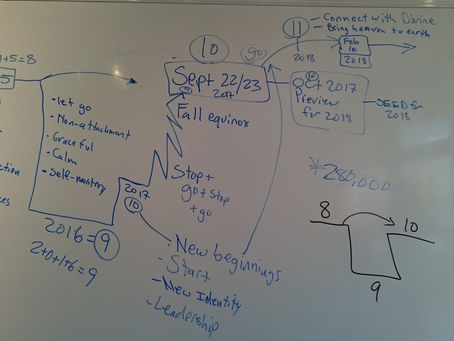 +5=8
5
- Let go
- Non-attachment
- Graceful
- Calm
- Self-mastery
2016=9
2+0+1+6=9
2017
10
10
Sept 22/23
2017
9
Fall equinox
Stop+
go+stop
+go
New beginnings
- Start
- New Identity
- Leadership
go
11
2018
- Connect with Divine
- Being heaven to earth
Feb
10
2018
10
Oct 2017
Preview
for 2018
SEED for
2018
¥280,000
8
10
9